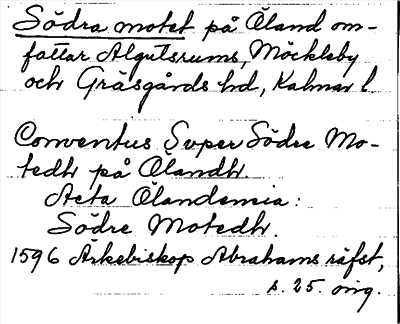 Södra motet på Öland om-
fattar Algutsrums, Möckleby
och Gräsgårds hd, Kalmar l.
Conventus Super Södre Mo-
tedh på Ölandh.
Acta Ölandemia:
Södre Motedh.
1596 Ärkebiskop Abrahams räfst,
s. 25. orig.